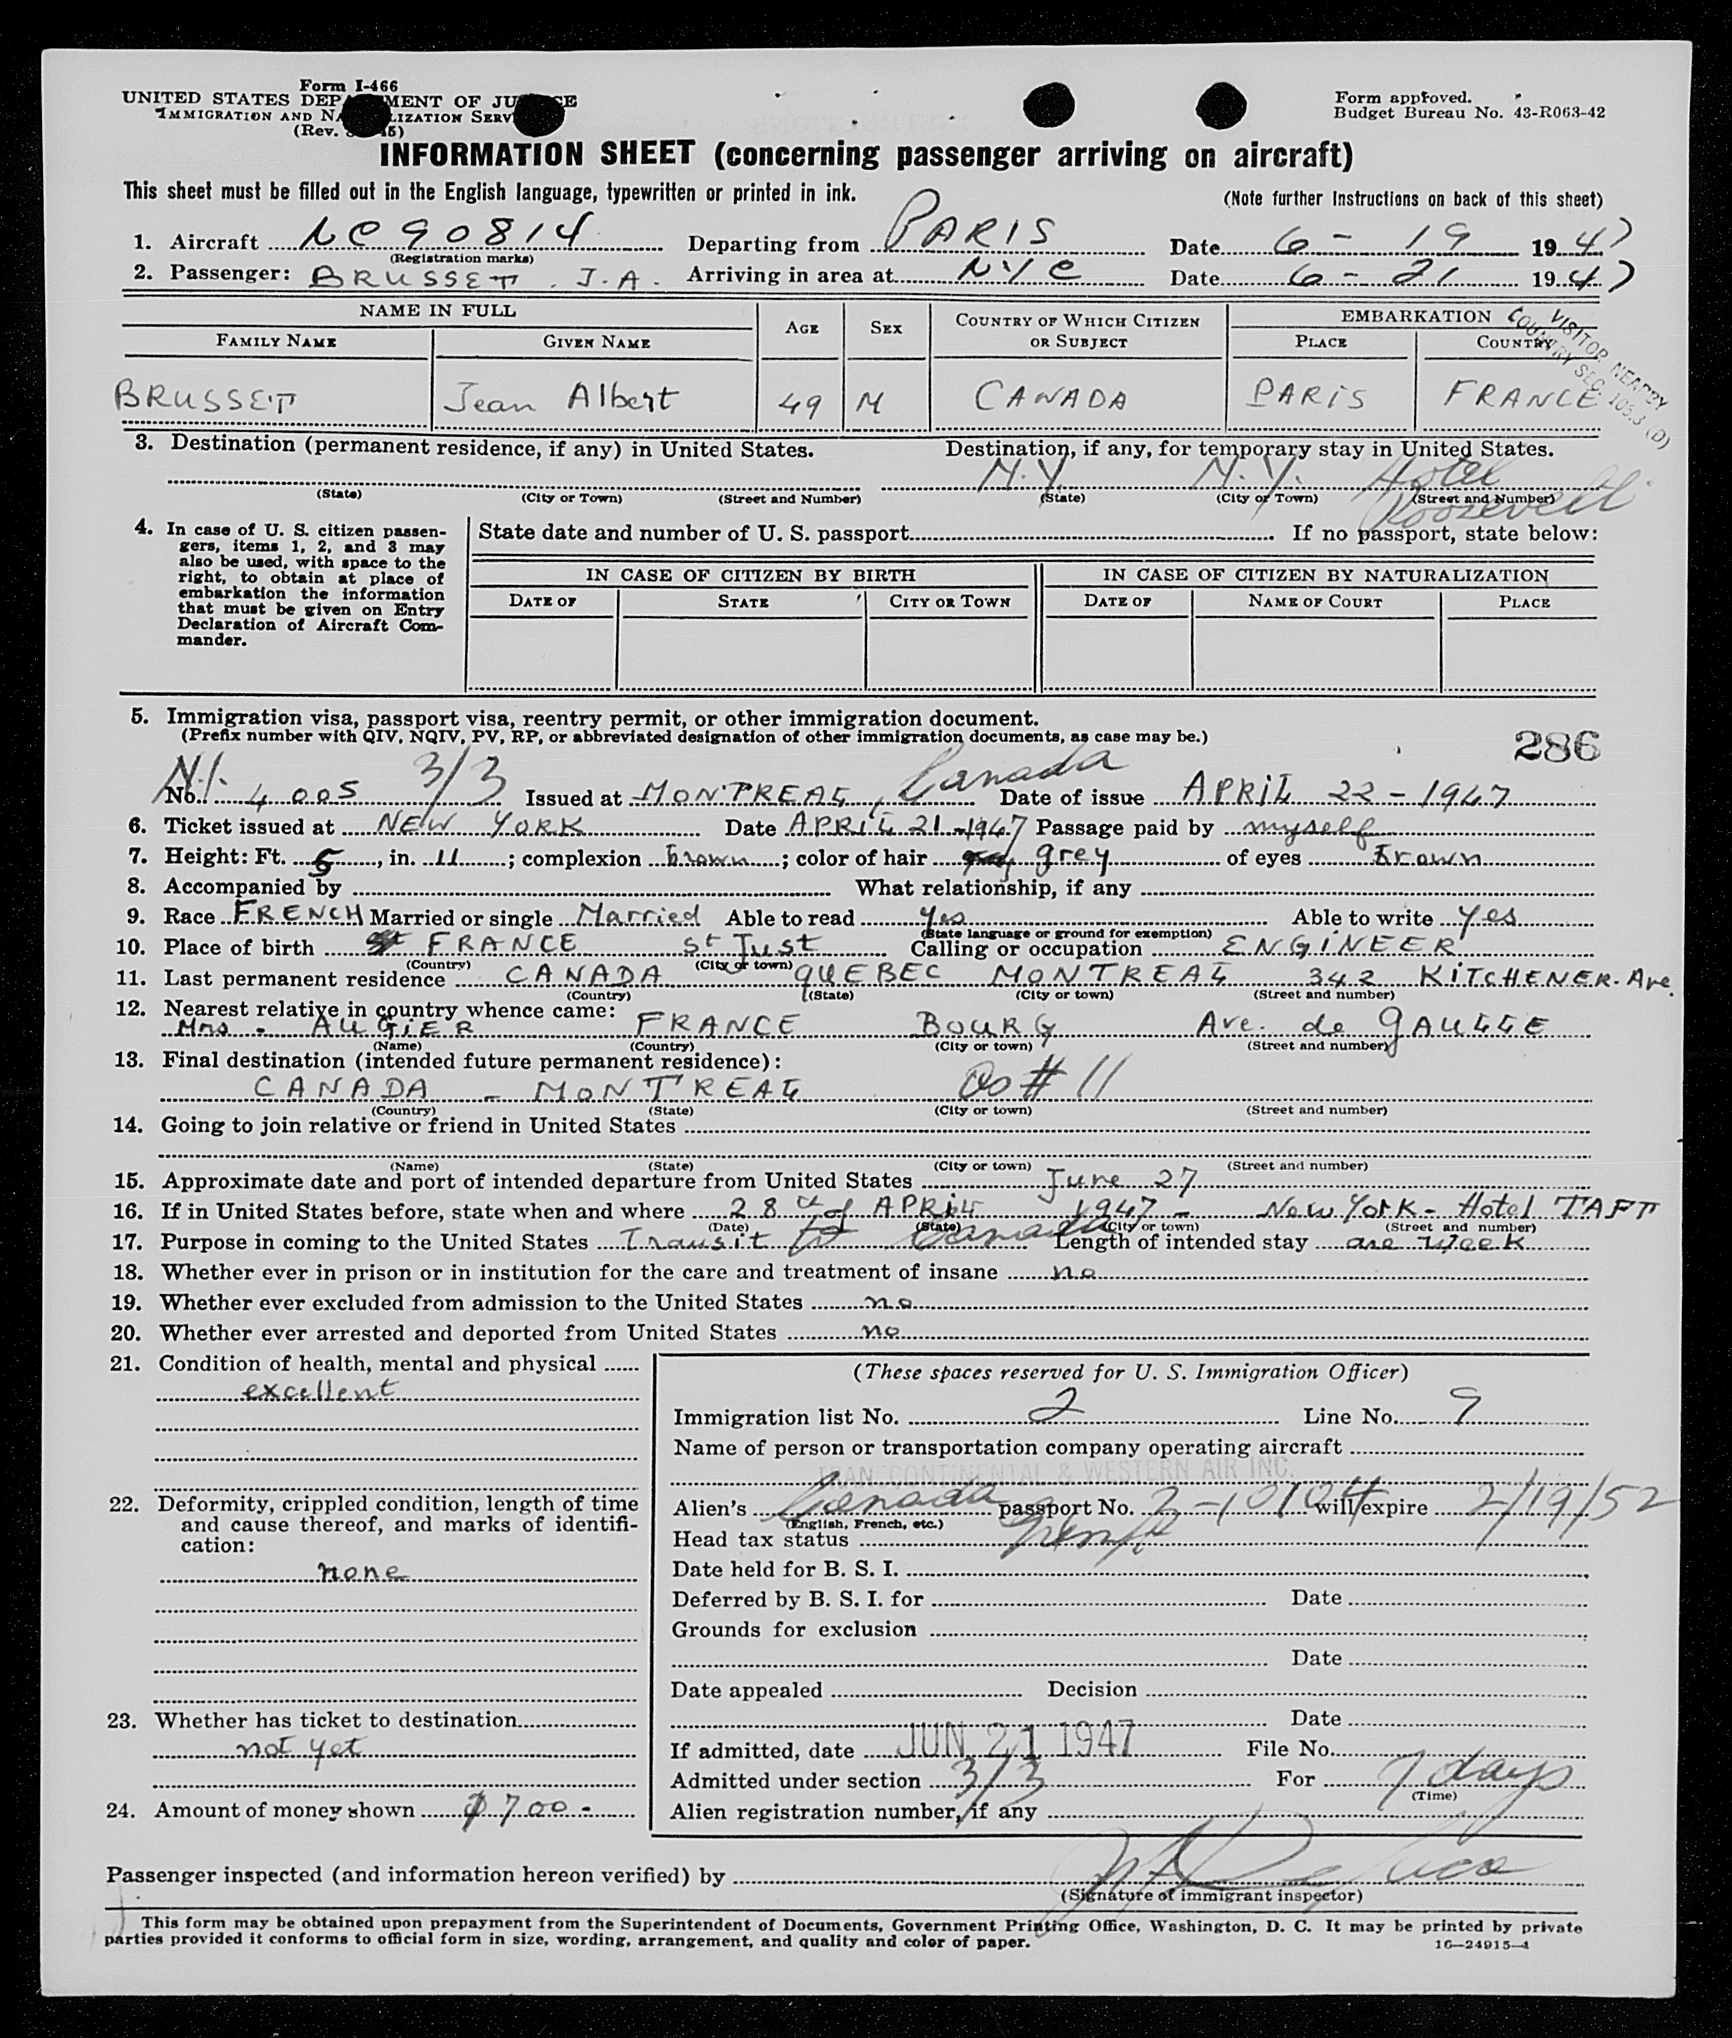 Form I-466
UNITED STATES DEPARTMENT OF JUSTICE
IMMIGRATION AND NATURALIZATION SERVICE
(Rev. 45)
Form approved.
Budget Bureau No. 43-R063-42
INFORMATION SHEET (concerning passenger arriving on aircraft)
This sheet must be filled out in the English language, typewritten or printed in ink.
(Note further instructions on back of this sheet)
1. Aircraft NC 90814 Departing from PARIS Date 6 - 19 1947
(Registration marks)
2. Passenger: BRUSSET . J.A. Arriving in area at NYC Date 6 - 21 1947
NAME IN FULL AGE SEX COUNTRY OF WHICH CITIZEN OR SUBJECT EMBARKATION
FAMILY NAME GIVEN NAME PLACE COUNTRY
VISITOR NEARBY
COUNTRY SEC. 105.3 (D)
BRUSSET Jean Albert 49 M CANADA PARIS FRANCE
3. Destination (permanent residence, if any) in United States. Destination, if any, for temporary stay in United States.
N.Y. N.Y. Hotel Roosevelt
(State) (City or Town) (Street and Number) (State) (City or Town) (Street and Number)
4. In case of U. S. citizen passen-
gers, items 1, 2, and 3 may
also be used, with space to the
right, to obtain at place of
embarkation the information
that must be given on Entry
Declaration of Aircraft Com-
mander.
State date and number of U. S. passport If no passport, state below:
IN CASE OF CITIZEN BY BIRTH IN CASE OF CITIZEN BY NATURALIZATION
DATE OF STATE CITY OR TOWN DATE OF NAME OF COURT PLACE
5. Immigration visa, passport visa, reentry permit, or other immigration document.
(Prefix number with QIV, NQIV, PV, RP, or abbreviated designation of other immigration documents, as case may be.)
286
N.I. 3/3
No. 4005 Issued at MONTREAL, Canada Date of issue APRIL 22 - 1947
6. Ticket issued at NEW YORK Date APRIL 21 - 1947 Passage paid by myself
7. Height: Ft. 5, in. 11; complexion brown; color of hair grey of eyes brown
8. Accompanied by What relationship, if any
9. Race FRENCH Married or single Married Able to read yes Able to write yes
(State language or ground for exemption)
10. Place of birth FRANCE St Just Calling or occupation ENGINEER
(Country) (City or town)
11. Last permanent residence CANADA QUEBEC MONTREAL 342 KITCHENER. Ave.
(Country) (State) (City or town) (Street and number)
12. Nearest relative in country whence came:
Mrs - AUGIER FRANCE BOURG Ave. de GAULLE
(Name) (Country) (City or town) (Street and number)
13. Final destination (intended future permanent residence):
CANADA - MONTREAL as # 11
(Country) (State) (City or town) (Street and number)
14. Going to join relative or friend in United States
(Name) (State) (City or town) (Street and number)
15. Approximate date and port of intended departure from United States June 27
16. If in United States before, state when and where 28th of APRIL 1947 - New York - Hotel TAFT
(Date) (State) (City or town) (Street and number)
17. Purpose in coming to the United States Transit to Canada Length of intended stay one week
18. Whether ever in prison or in institution for the care and treatment of insane no
19. Whether ever excluded from admission to the United States no
20. Whether ever arrested and deported from United States no
21. Condition of health, mental and physical
excellent
22. Deformity, crippled condition, length of time
and cause thereof, and marks of identifi-
cation:
none
23. Whether has ticket to destination
not yet
24. Amount of money shown $700.-
(These spaces reserved for U. S. Immigration Officer)
Immigration list No. 2 Line No. 9
Name of person or transportation company operating aircraft
TRANSCONTINENTAL & WESTERN AIR INC.
Alien's Canada passport No. 2-10104 will expire 2/19/52
(English, French, etc.)
Head tax status
Date held for B. S. I.
Deferred by B. S. I. for Date
Grounds for exclusion
Date
Date appealed Decision
Date
If admitted, date JUN 21 1947 File No.
Admitted under section 3/3 For 7 days
(Time)
Alien registration number, if any
Passenger inspected (and information hereon verified) by
(Signature of immigrant inspector)
This form may be obtained upon prepayment from the Superintendent of Documents, Government Printing Office, Washington, D. C. It may be printed by private
parties provided it conforms to official form in size, wording, arrangement, and quality and color of paper.
16—24915-1